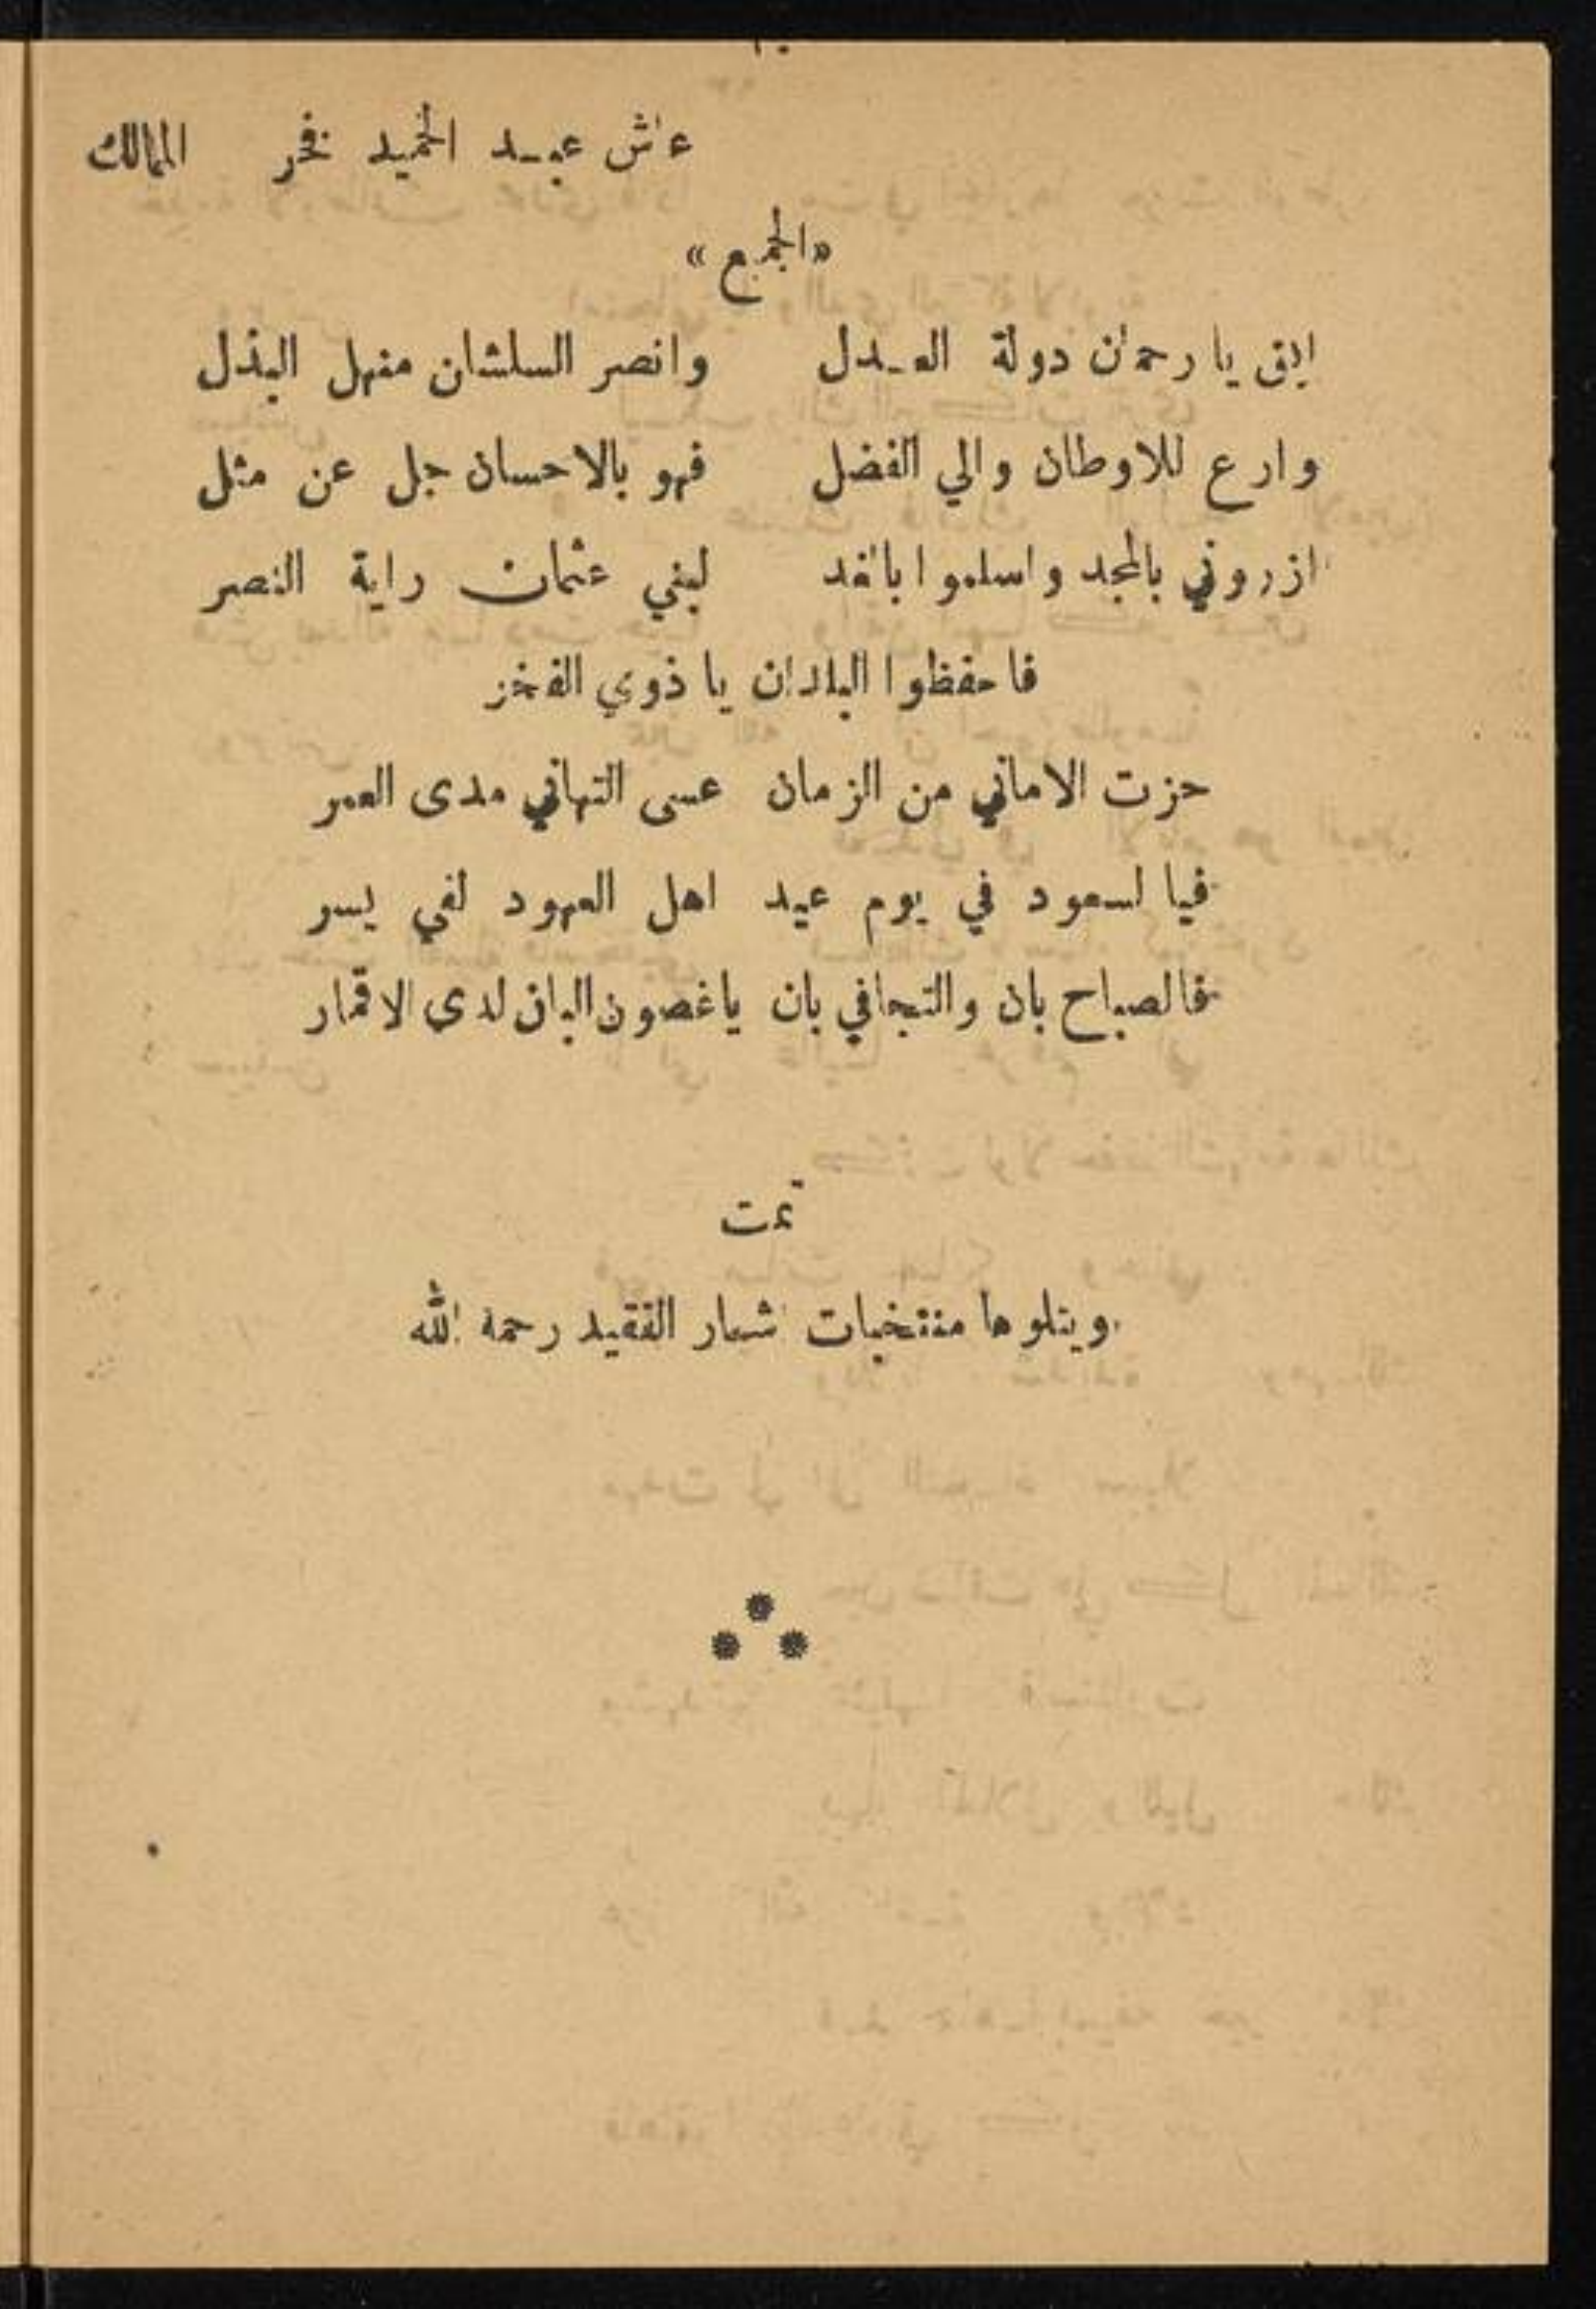 عاش عبد الحميد فخر الممالك
«الجميع»
ابق يا رحمان دولة العدل وانصر السلشان منهل البذل
وارع للاوطان والي الفضل فهو بالاحسان جل عن مثل
ازروني بالمجد واسلموا بالغد لبني عثمان راية النصر
فاحفظوا البلدان يا ذوي الفخر
حزت الاماني من الزمان عسى التهاني مدى العمر
فيا لسعود في يوم عيد اهل العهود لفي يسر
فالصباح بان والتجافي بان ياغصون البان لدى الاقمار
تمت
ويتلوها منتخبات اشعار الفقيد رحمه الله